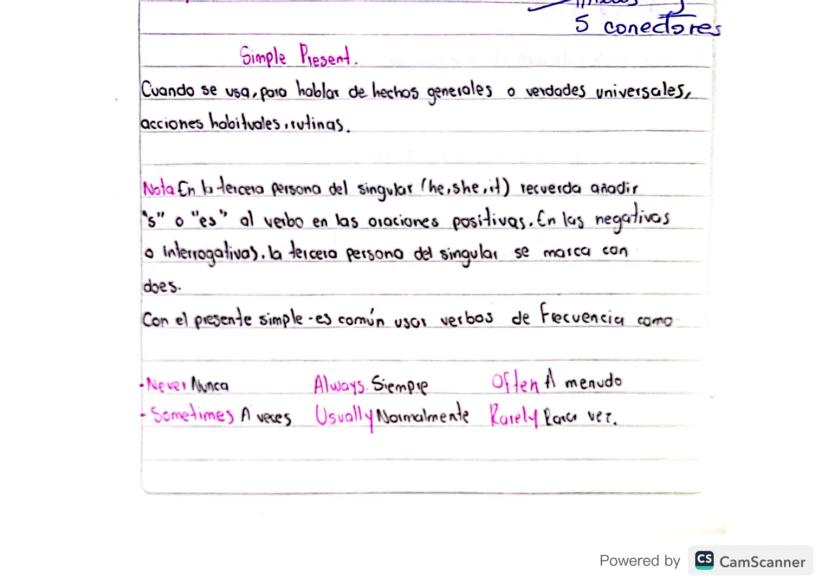 5 conectores
Simple Present.
Cuando se usa, para hablar de hechos generales o verdades universales,
acciones habituales, rutinas.
Nota En la tercera persona del singular (he, she, it) recuerda añadir
"s" o "es" al verbo en las oraciones positivas. En las negativas
o interrogativas. la tercera persona del singular se marca con
does.
Con el presente simple - es común usar verbos de Frecuencia como
- Never Nunca Always. Siempre Often A menudo
- Sometimes A veces Usually Normalmente Rarely Rara vez.
Powered by CS CamScanner